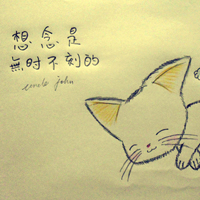 想念是
無时不刻的
john